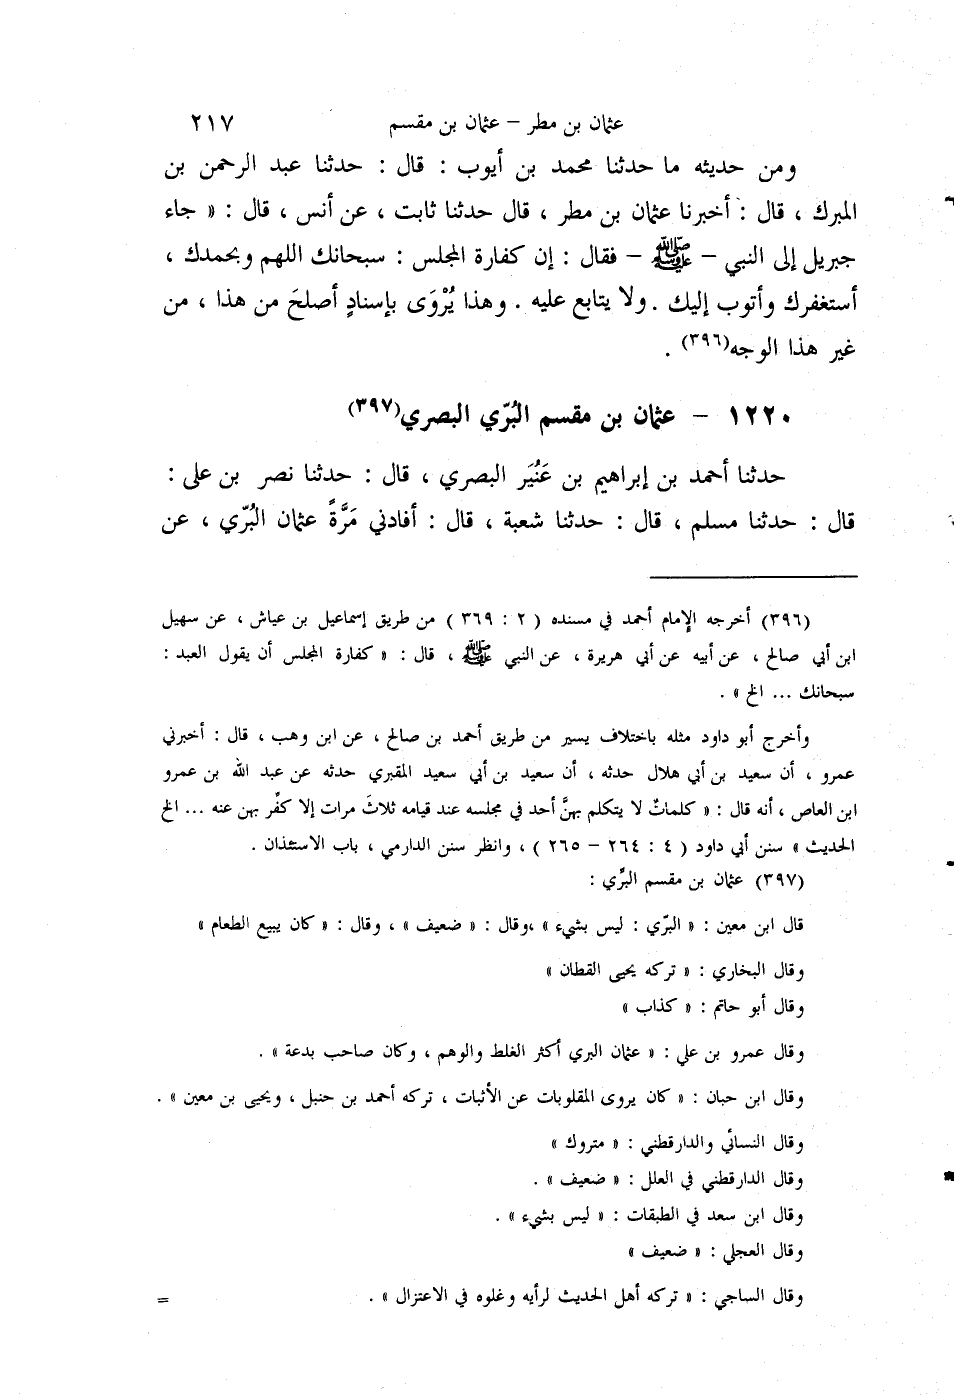 عثمان بن مطر – عثمان بن مقسم ٢١٧
ومن حديثه ما حدثنا محمد بن أيوب : قال : حدثنا عبد الرحمن بن
المبرك ، قال : أخبرنا عثمان بن مطر ، قال حدثنا ثابت ، عن أنس ، قال : « جاء
جبريل إلى النبي – ﷺ – فقال : إن كفارة المجلس : سبحانك اللهم وبحمدك ،
أستغفرك وأتوب إليك . ولا يتابع عليه . وهذا يُرْوَى بإسنادٍ أصلحَ من هذا ، من
غير هذا الوجه(٣٩٦) .
١٢٢٠ – عثمان بن مقسم البُرّي البصري(٣٩٧)
حدثنا أحمد بن إبراهيم بن عَنُيَر البصري ، قال : حدثنا نصر بن على :
قال : حدثنا مسلم ، قال : حدثنا شعبة ، قال : أفادني مَرَّةً عثمان البُرّي ، عن
(٣٩٦) أخرجه الإمام أحمد في مسنده ( ٢ : ٣٦٩ ) من طريق إسماعيل بن عياش ، عن سهيل
ابن أبي صالح ، عن أبيه عن أبي هريرة ، عن النبي ﷺ ، قال : « كفارة المجلس أن يقول العبد :
سبحانك ... الخ » .
وأخرج أبو داود مثله باختلاف يسير من طريق أحمد بن صالح ، عن ابن وهب ، قال : أخبرني
عمرو ، أن سعيد بن أبي هلال حدثه ، أن سعيد بن أبي سعيد المقبري حدثه عن عبد الله بن عمرو
ابن العاص ، أنه قال : « كلماتٌ لا يتكلم بهنَّ أحد في مجلسه عند قيامه ثلاثَ مرات إلا كفِّر بهن عنه ... الخ
الحديث » سنن أبي داود ( ٤ : ٢٦٤ – ٢٦٥ ) ، وانظر سنن الدارمي ، باب الاستئذان .
(٣٩٧) عثمان بن مقسم البرِّي :
قال ابن معين : « البرّي : ليس بشيء » ،وقال : « ضعيف » ، وقال : « كان يبيع الطعام »
وقال البخاري : « تركه يحيى القطان »
وقال أبو حاتم : « كذاب »
وقال عمرو بن علي : « عثمان البري أكثر الغلط والوهم ، وكان صاحب بدعة » .
وقال ابن حبان : « كان يروى المقلوبات عن الأثبات ، تركه أحمد بن حنبل ، ويحيى بن معين » .
وقال النسائي والدارقطني : « متروك »
وقال الدارقطني في العلل : « ضعيف » .
وقال ابن سعد في الطبقات : « ليس بشيء » .
وقال العجلي : « ضعيف »
وقال الساجي : « تركه أهل الحديث لرأيه وغلوه في الاعتزال » . =